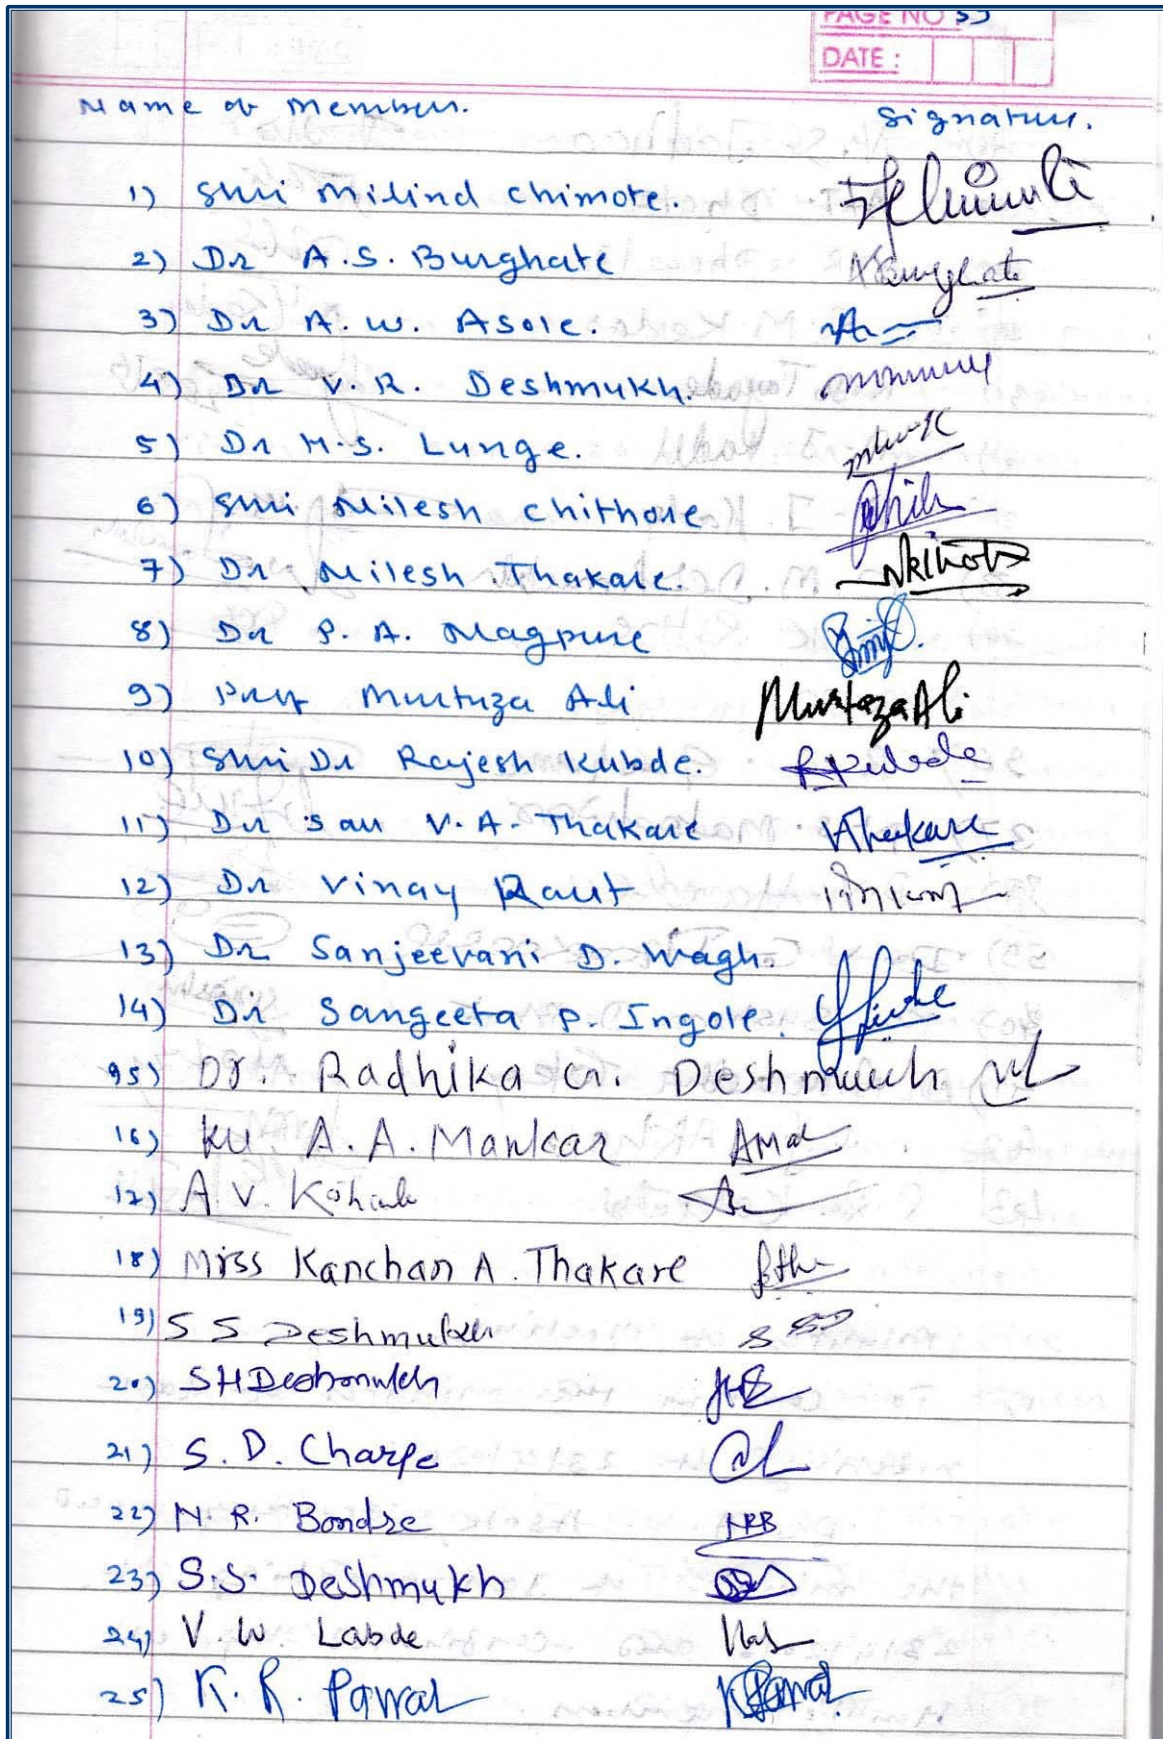 PAGE NO 55
DATE :
Name of Member. Signature.
1) Shri Milind Chimote.
2) Dr A.S. Burghate ASBurghate
3) Dr A.W. Asole.
4) Dr V.R. Deshmukh.
5) Dr M.S. Lunge.
6) Shri Nilesh Chithore
7) Dr Nilesh Thakare.
8) Dr P. A. Nagpure
9) Prof Murtuza Ali Murtaza Ali
10) Shri Dr Rajesh Kubde. RKubde
11) Dr Sau V.A. Thakare VThakare
12) Dr Vinay Raut
13) Dr Sanjeevani D. Wagh.
14) Dr Sangeeta P. Ingole.
15) Dr. Radhika G. Deshmukh
16) Ku A. A. Mankar
17) A V.
18) Miss Kanchan A. Thakare
19) S S Deshmukh
20) SH Deshmukh
21) S. D. Charpe
22) N. R. Bondre NRB
23) S.S. Deshmukh
24) V. W. Labde
25) K. R. Pawar KRPawar